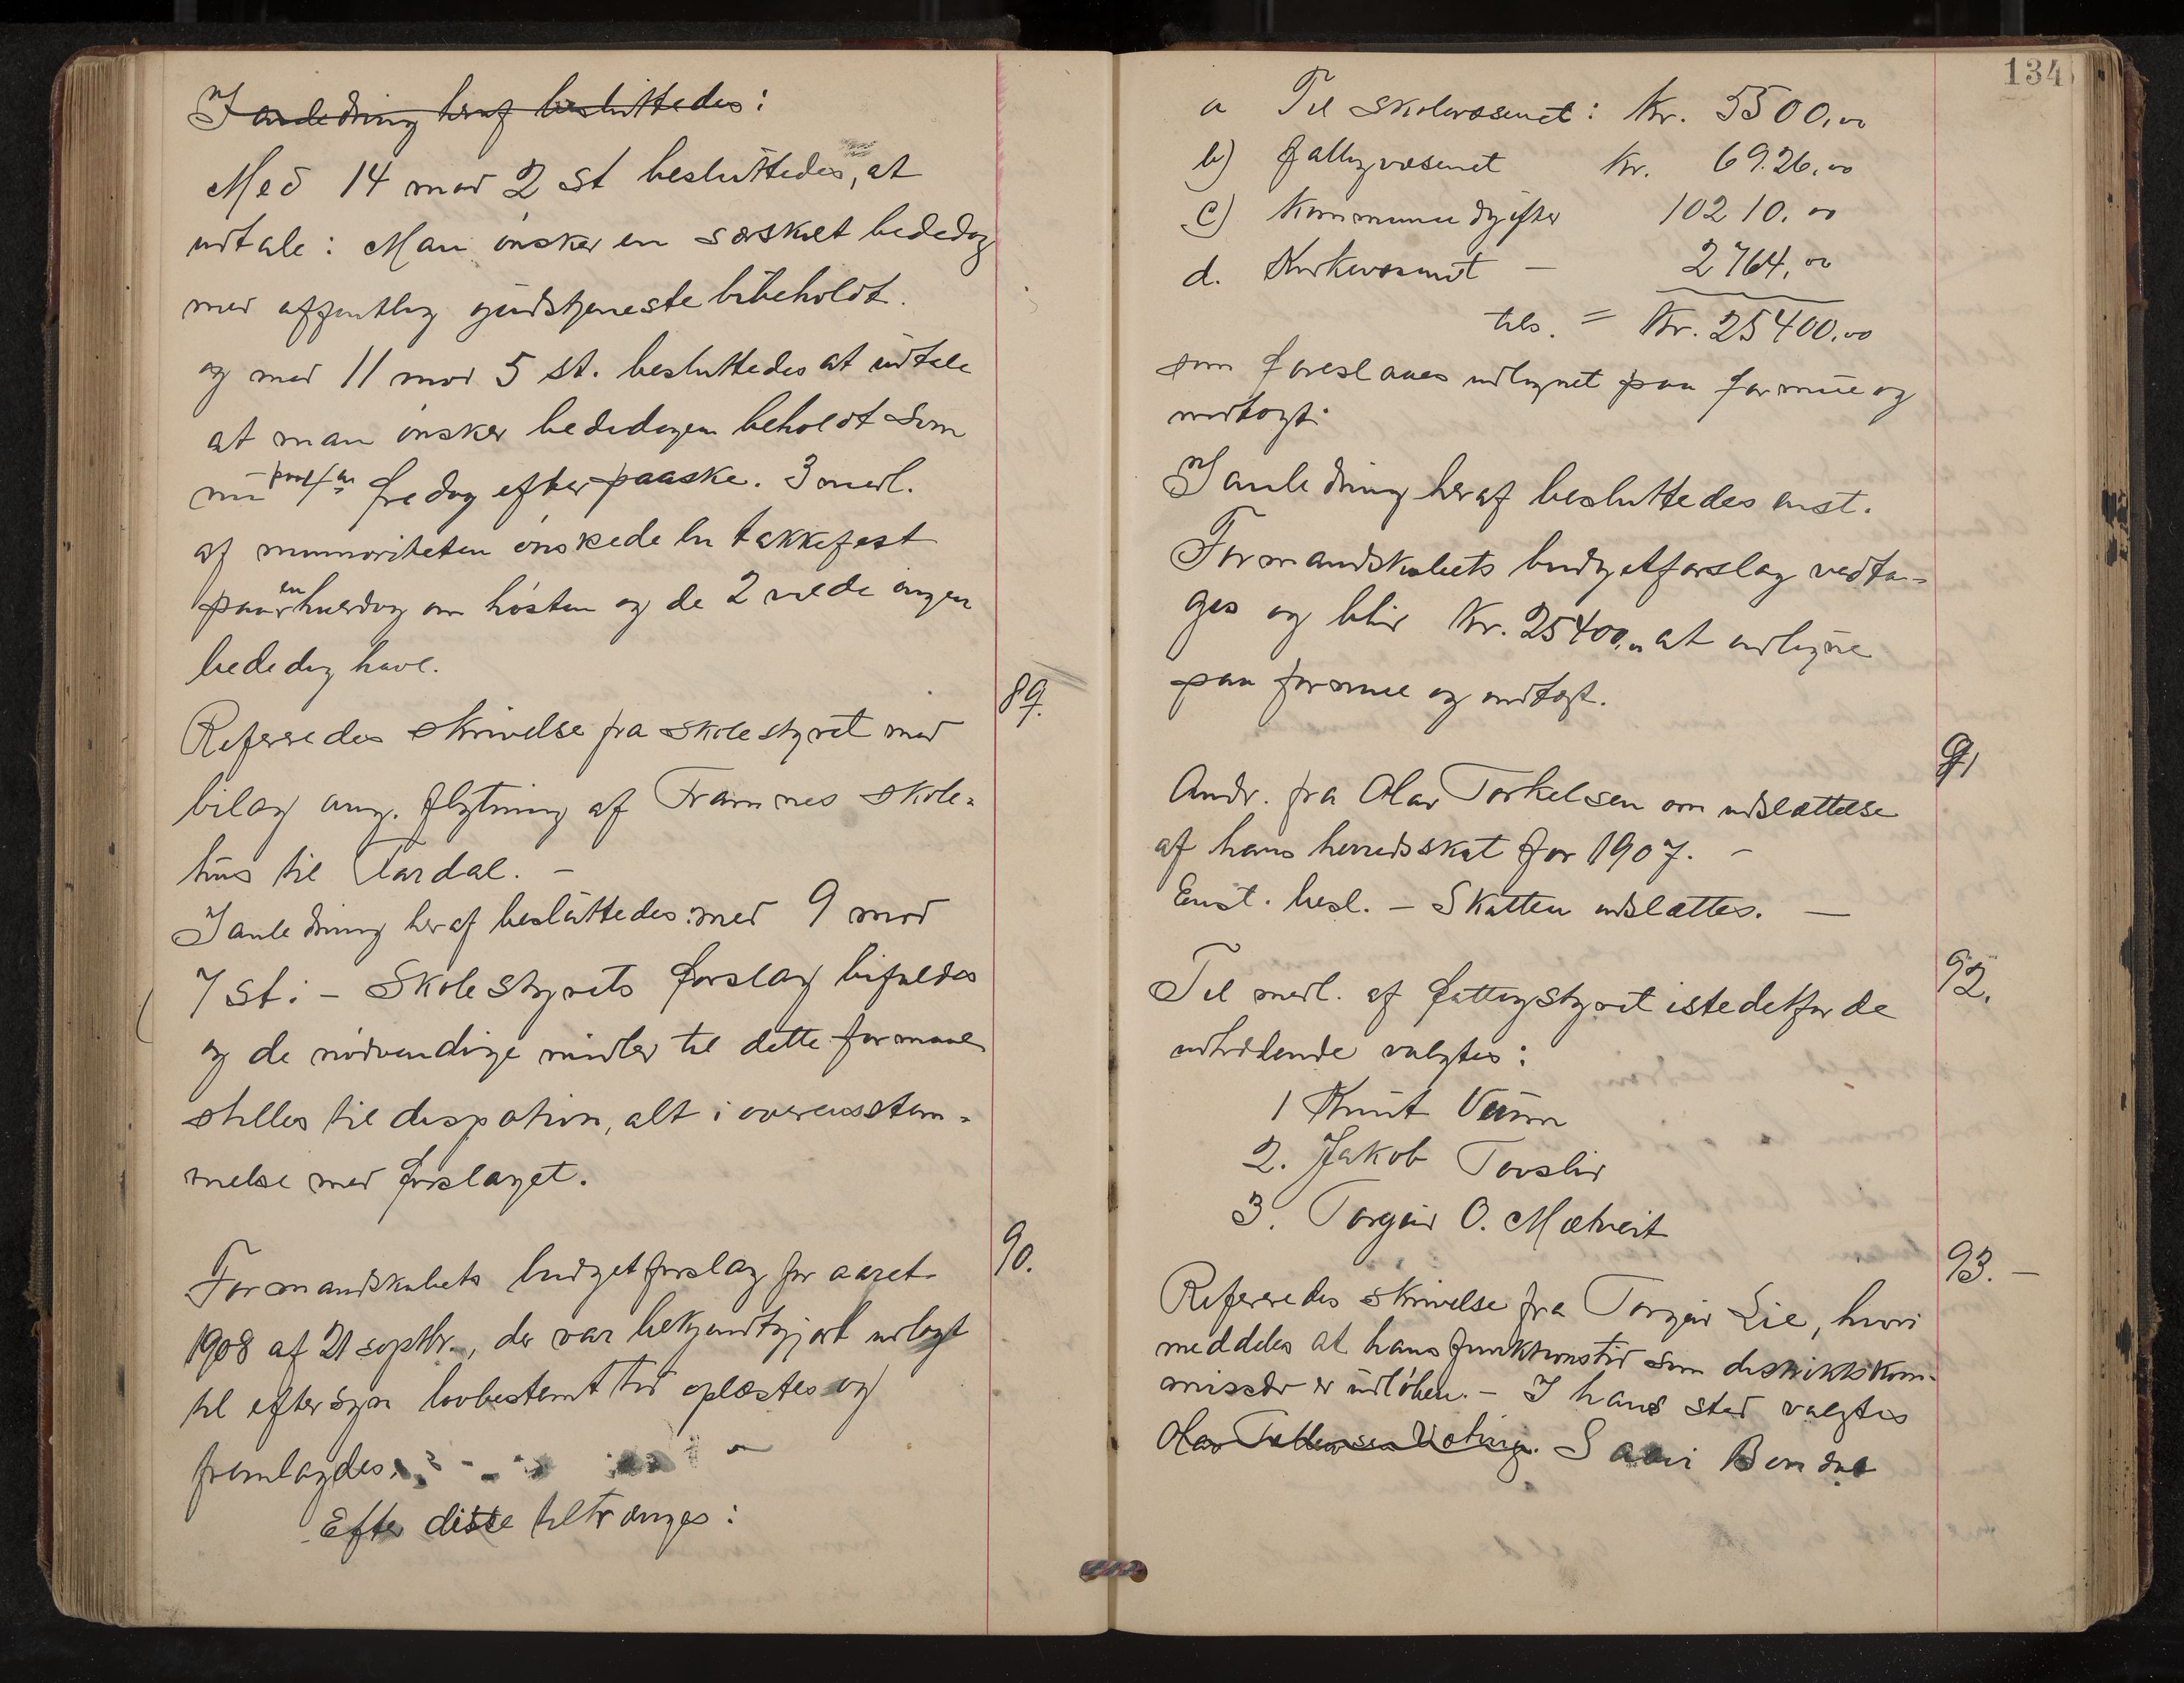 I anledning heraf besluttedes:
Med 14 mod 2 st besluttedes, at
udtale: Man ønsker en særskilt bededag
med offentlig gudstjeneste bibeholdt.
og med 11 mod 5 st. besluttedes at udtale
at man ønsker bededagen beholdt som
nu paa 4de fredag efter paaske. 3 medl.
af minoriteten ønskede en takkefest
paa en hverdag om høsten og de 2 vilde ingen
bededag have.
89.
Referedes skrivelse fra skolestyret med
bilag ang. flytning af Framnes skole-
hus til Tardal. -
I anledning heraf besluttedes med 9 mod
7 St: - Skolestyrets forslag bifaldes
og de nødvendige midler til dette formaal
stilles til dispotion, alt i overensstem-
melse med forslaget.
90.
Formandskabets budgetforslag for aaret
1908 af 21 septbr., der var bekjendtgjort udlagt
til eftersyn lovbestemt tid oplæstes og
fremlagdes.
Efter disse tiltrænges:
134
a Til skolevæsenet: Kr. 5500,00
b) fattigvæsenet Kr. 69.26,00
c) Kommuneudgifter 10210.00
d. Kirkevæsenet - 2764,00
tils. = Kr. 25400,00
som foreslaaes udlignet paa formue og
indtægt.
I anledning heraf besluttedes enst.
Formandskabets budgetforslag vedta-
ges og blir Kr. 25400,00 at udligne
paa formue og indtægt.
91
Andr. fra Olav Torkelsen om udslættelse
af hans herredsskat for 1907. -
Enst. besl. - Skatten udslættes. -
92.
Til medl. af fattigstyret istedetfor de
udtrædende valgtes:
1 Knut
2. Jakob Tovslid
3. Torgeir O. Mætveit
93. -
Referedes skrivelse fra Torgeir Lie, hvori
meddeles at hans funktionstid som distriktskom-
missær er udløben. - I hans sted valgtes
Olav